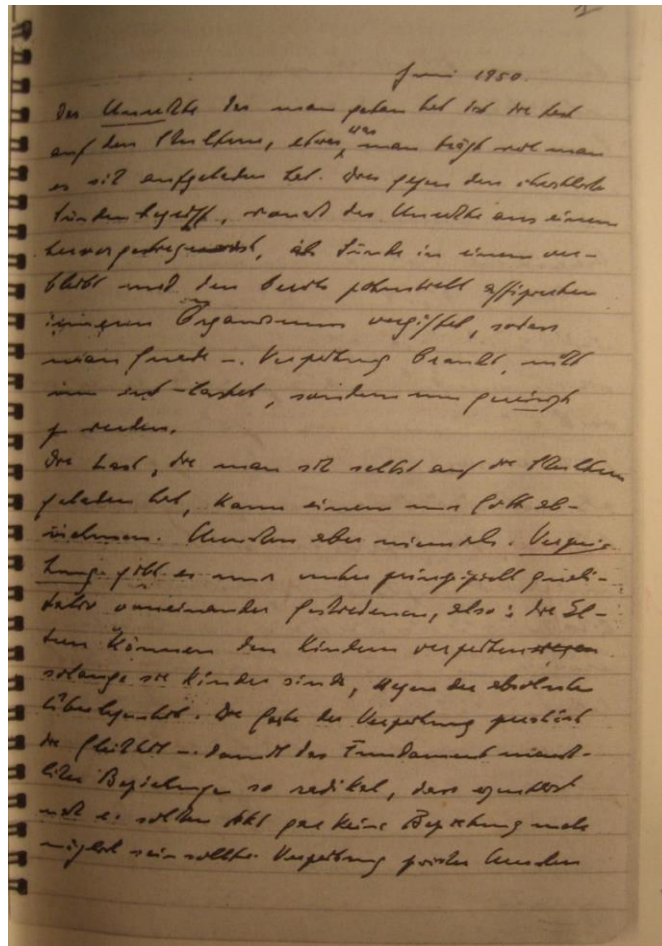 1
Juni 1950.
Das Unrecht das man getan hat ist die Last
auf den Schultern, etwas, was man trägt weil man
es sich aufgeladen hat. Dies gegen den christlichen
Sündenbegriff, wonach das Unrecht aus einem
hervorgestiegen ist, als Sünde in einem ver-
bleibt und den bereits potentiell affizierten
inneren Organismus vergiftet, sodass
man Gnade u. Verzeihung braucht, nicht
um ent-lastet, sondern um gereinigt
zu werden.
Die Last, die man sich selbst auf die Schultern
geladen hat, kann einem nur Gott ab-
nehmen. Menschen aber niemals. Verzei-
hung gibt es nur unter prinzipiell quali-
tativ voneinander Geschiedenen, also: die El-
tern können den Kindern verzeihen
solange sie Kinder sind, wegen der absoluten
Überlegenheit. Die Geste der Verzeihung zerstört
die Gleichheit u. damit das Fundament mensch-
licher Beziehungen so radikal, dass eigentlich
nach e. solchen Akt gar keine Beziehung mehr
möglich sein sollte. Verzeihung zwischen Menschen